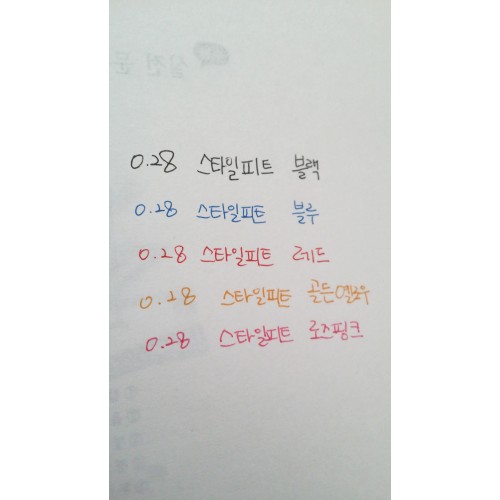 0.28 스타일피트 블랙
0.28 스타일피트 블루
0.28 스타일피트 레드
0.28 스타일피트 골든옐로우
0.28 스타일피트 로즈핑크